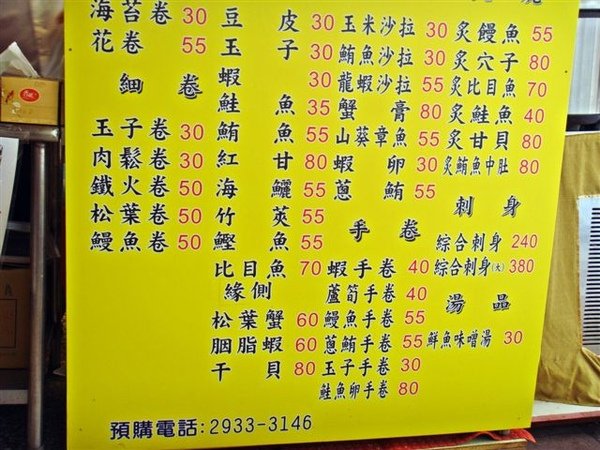 海苔卷 30
花卷 55
細卷
玉子卷 30
肉鬆卷 30
鐵火卷 50
松葉卷 50
鰻魚卷 50
豆皮 30
玉子 30
蝦 30
鮭魚 35
鮪魚 55
紅甘 80
海鱺 55
竹莢 55
鰹魚 55
比目魚 70
緣側
松葉蟹 60
胭脂蝦 60
干貝 80
玉米沙拉 30
鮪魚沙拉 30
龍蝦沙拉 55
蟹膏 80
山葵章魚 55
蝦卵 30
蔥鮪 55
手卷
蝦手卷 40
蘆筍手卷 40
鰻魚手卷 55
蔥鮪手卷 55
玉子手卷 30
鮭魚卵手卷 80
炙鰻魚 55
炙穴子 80
炙比目魚 70
炙鮭魚 40
炙甘貝 80
炙鮪魚中肚 80
刺身
綜合刺身 240
綜合刺身(大) 380
湯品
鮮魚味噌湯 30
預購電話:2933-3146